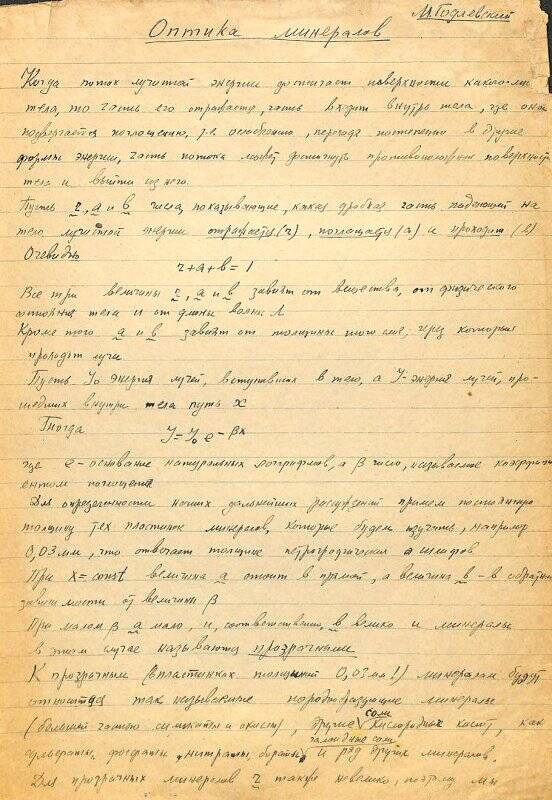 М. Годлевский
Оптика минералов
Когда поток лучистой энергии достигает поверхности какого-либо
тела, то часть его отражается, часть входит внутрь тела, где она
подвергается поглощению, т.е. ослаблению, переходя постепенно в другие
формы энергии, часть потока может достигнуть противоположной поверхности
тела и выйти из него.
Пусть r, a и b числа, показывающие, какая дробная часть падающей на
тело лучистой энергии отражается (r), поглощается (a) и проходит (b)
Очевидно
r + a + b = 1
Все три величины r, a и b зависят от вещества, от физического
состояния тела и от длины волны Λ
Кроме того a и b зависят от толщины того слоя, через который
проходят лучи
Пусть J₀ энергия лучей, вступивших в тело, а J - энергия лучей, про-
шедших внутри тела путь x
Тогда J = J₀ e^-βx
где e - основание натуральных логарифмов, а β число, называемое коэффици-
ентом поглощения
Для определенности наших дальнейших рассуждений примем постоянную
толщину тех пластинок минералов, которые будем изучать, например
0,03 мм, что отвечает толщине петрографических шлифов
При x = const величина a стоит в прямой, а величина b - в обратной
зависимости от величины β
При малом β a мало, и, соответственно, b велико и минералы
в этом случае называются прозрачными
К прозрачным (в пластинках толщиной 0,03 мм!) минералам будут
относится так называемые породообразующие минералы
(большей частью силикаты и окислы), другие соли кислородных кислот, как
сульфаты, фосфаты, нитраты, бораты, галоидные соли и ряд других минералов.
Для прозрачных минералов r также невелико, поэтому мы